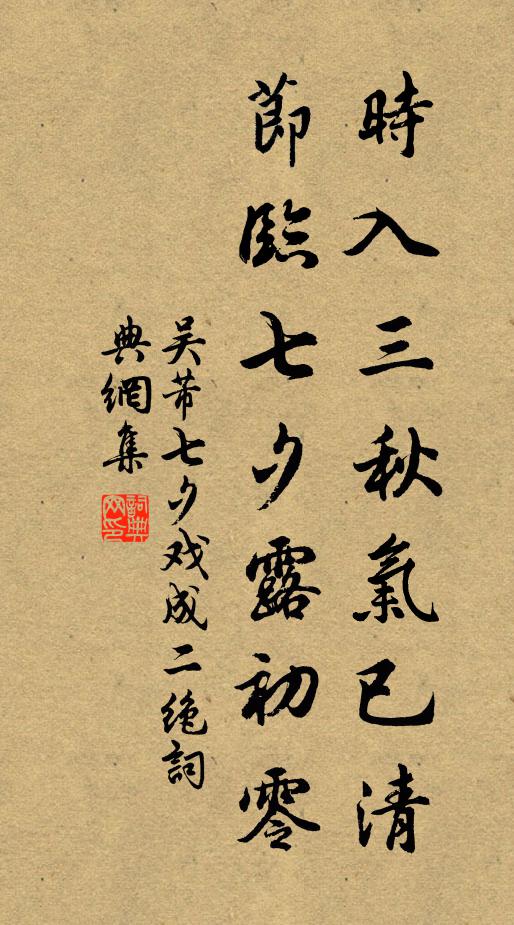 時入三秋氣已清
節臨七夕露初零
吴芾七夕戏成二绝詞
典網集
詞典网印